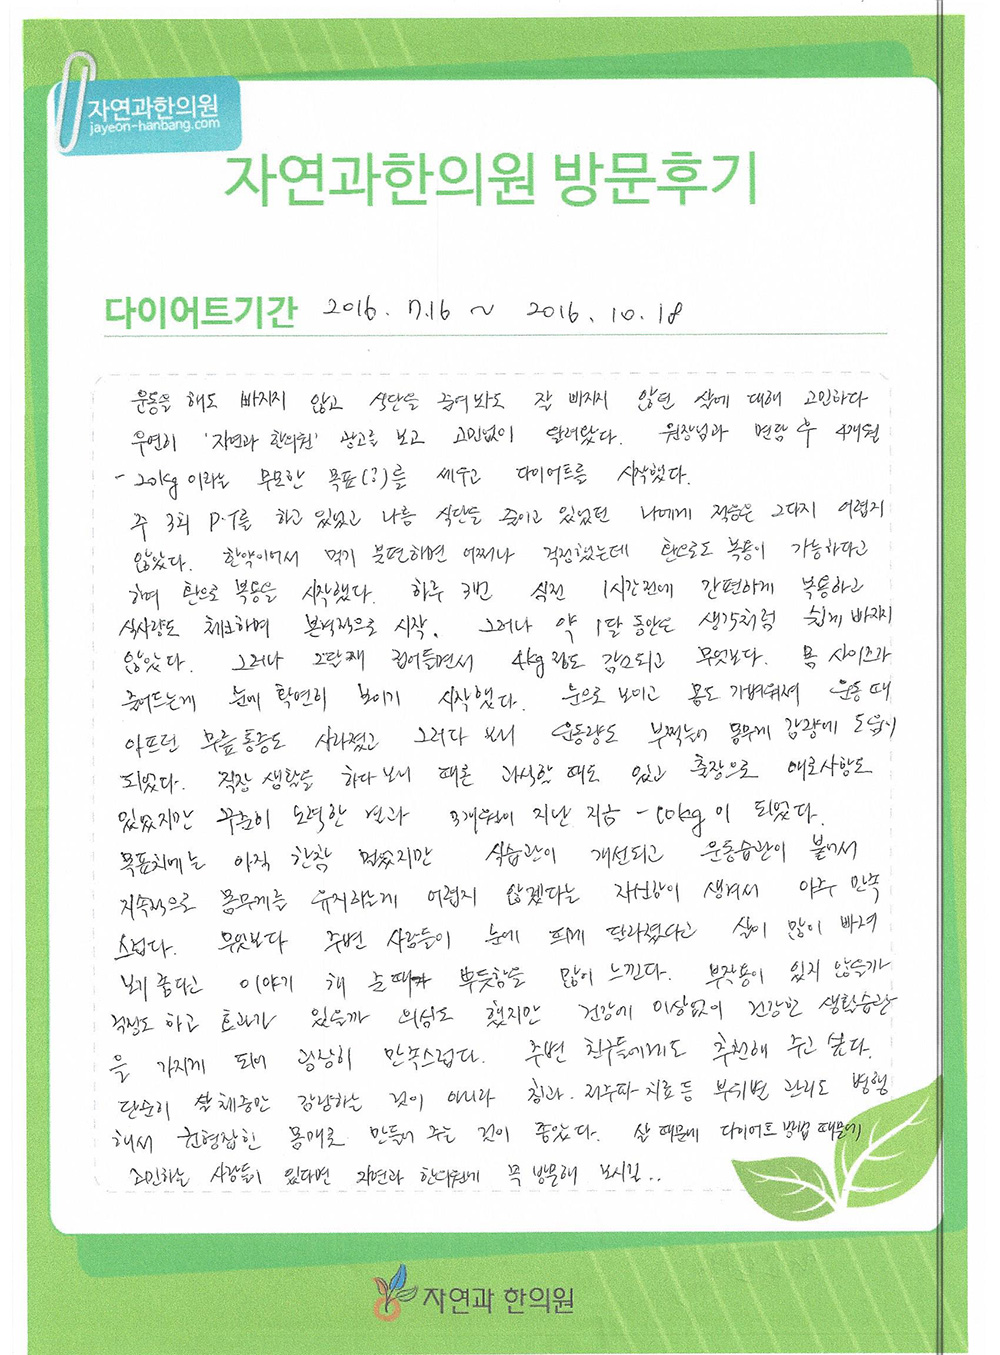 자연과한의원
jayeon-hanbang.com
자연과한의원 방문후기
다이어트기간 2016. 7.16 ~ 2016. 10. 18
운동을 해도 빠지지 않고 식단을 줄여봐도 잘 빠지지 않던 살에 대해 고민하다
우연히 '자연과 한의원' 광고를 보고 고민없이 달려왔다. 원장님과 면담 후 4개월
-20kg 이라는 무모한 목표(?)를 세우고 다이어트를 시작했다.
주 3회 P.T를 하고 있었고 나름 식단을 줄이고 있었던 나에게 적응은 그다지 어렵지
않았다. 한약이어서 먹기 불편하면 어쩌나 걱정했는데 환으로도 복용이 가능하다고
하여 환으로 복용을 시작했다. 하루 3번 식전 1시간전에 간편하게 복용하고
식사량도 체크하며 본격적으로 시작. 그러나 약 1달 동안은 생각처럼 쉽게 빠지지
않았다. 그러나 2달째 접어들면서 4kg 정도 감소되고 무엇보다. 몸 사이즈가
줄어드는게 눈에 확연히 보이기 시작했다. 눈으로 보이고 몸도 가벼워져 운동 때
아프던 무릎통증도 사라졌고 그러다 보니 운동량도 부쩍늘어 몸무게 감량에 도움이
되었다. 직장 생활을 하다 보니 때론 과식할 때도 있고 출장으로 애로사항도
있었지만 꾸준히 노력한 결과 3개월이 지난 지금 -10kg 이 되었다.
목표치에는 아직 한참 멀었지만 식습관이 개선되고 운동습관이 붙어서
지속적으로 몸무게를 유지하는게 어렵지 않겠다는 자신감이 생겨서 아주 만족
스럽다. 무엇보다 주변 사람들이 눈에 띄게 달라졌다고 살이 많이 빠져
보기 좋다고 이야기 해 줄때 뿌듯함을 많이 느낀다. 부작용이 있지 않을까
걱정도 하고 효과가 있을까 의심도 했지만 건강에 이상없이 건강한 생활습관
을 가지게 되어 굉장히 만족스럽다. 주변 친구들에게도 추천해 주고 싶다.
단순히 살 체중만 감량하는 것이 아니라 침과. 저주파 치료 등 부위별 관리도 병행
해서 균형잡힌 몸매로 만들어 주는 것이 좋았다. 살 때문에 다이어트 방법 때문에
고민하는 사람들이 있다면 자연과 한의원에 꼭 방문해 보시길..
자연과 한의원